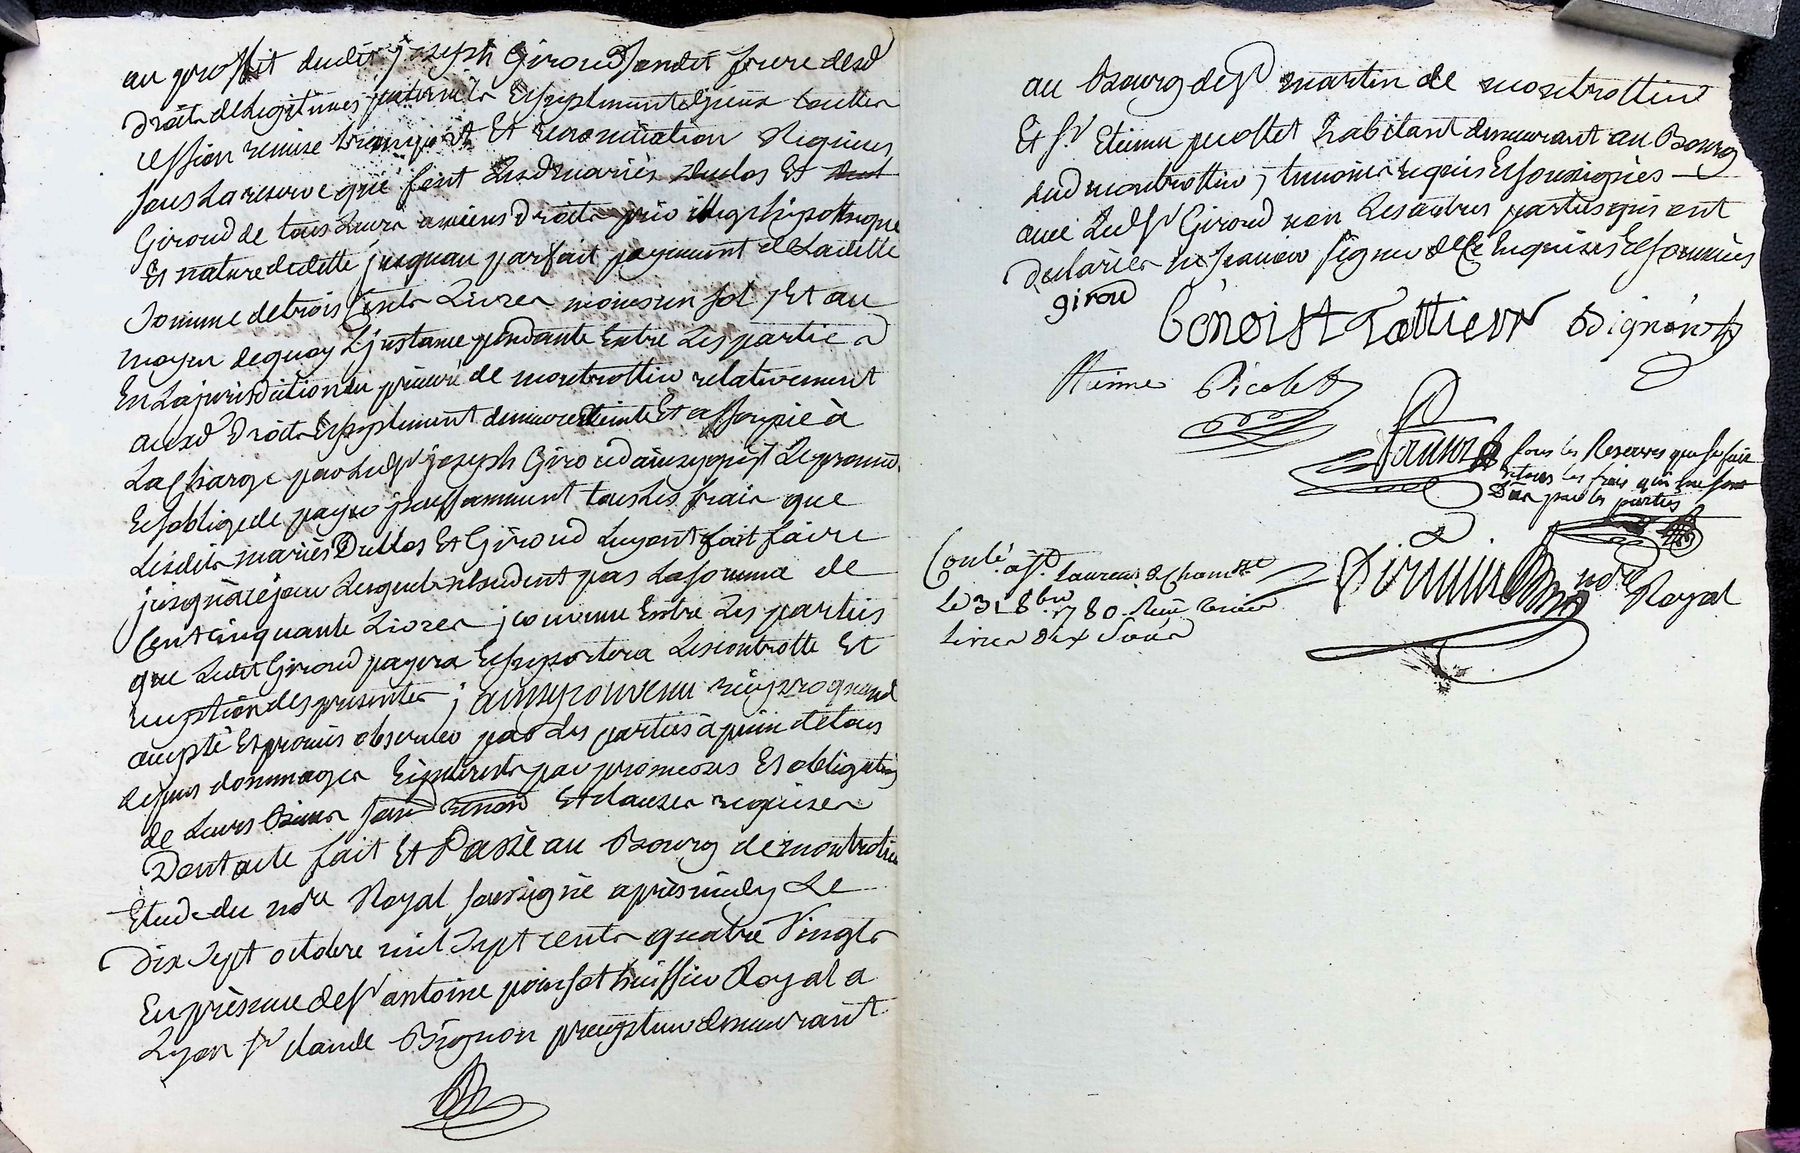 au proffit dudit joseph Giroud sondit frere desd
Droits delegitimes paternels Ensuplment dyceux touttes
cession remise transport Et renonciation Requises
sous La reserve que font Lesd mariés duclos Et
Giroud de tous Leurs anciens Droits privillege hipotheque
Et nature dedette jusquau parfait payement de Laditte
Somme detrois Cents Livres moins un sol ; Et au
moyen dequoy Linstance pendante Entre Les parties
En La jurisdiction du prieuré de montrottier relativement
auxd Droits Ensuplment demeure Eteinte Et assoupie à
La Charge par Ledsr joseph Giroud ainsy quil Le promet
Et soblige de payer jncessamment tous Les frais que
Lesdits mariés Duclos Et Giroud Luy ont fait faire
jusquàcejour Lesquels nexcedent pas La somme de
Cent cinquante Livres ; convenu Entre Les parties
que Ledit Giroud payera Et suportera Lescontrolle Et
exemption des presentes ; ainsy convenu reciproquement
accepté Et promis observer par Les parties à peine de tous
depens dommages Et jnterests par promesses Et obligation
de Leurs Biens Et clauses requises
Dont acte fait Et Passé au Bourg de montrottier
Etude du nore Royal soussigné aprèsmidy Le
Dix Sept octobre mil Sept cents quatre Vingts
En présence de sr antoine poinsot huissier Royal a
Lyon sr claude Bignon precepteur demeurant
au Bourg de st martin de montrottier
Et sr Etienne picollet habitant demeurant au Bourg
dud montrottier ; temoins requis Et soussignés
avec Ledsr Giroud non Les autres parties qui ont
declarées ne scavoir signer de ce Enquises Et sommées
giroud
Benoist Bignon
Etienne Picolet
sous les Reserves que je fais
de tous les frais qui me sont
Dûs par les parties
Conlé. à st. Laurent de Chamet
Le 31 8bre 1780. Reçu treize
Livres dix Sous
nore Royal